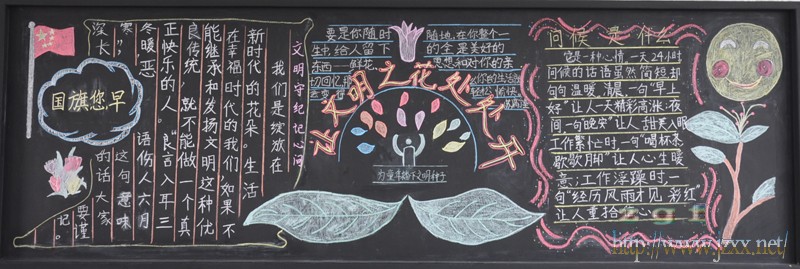 文明守纪记心间
我们是绽放在
新时代的花朵。生活
在幸福时代的我们,如果不
能继承和发扬文明这种优
良传统 就不能做一个真
正快乐的人。“良言入耳三
冬暖,恶 语伤人六月
寒”, 这句意味
深长 的话 大家
要谨
记。
国旗您早
要是你随时 随地,在你整个一
生中给人留下 的全是美好的
东西——鲜花、 思想和对你的亲
切回忆,那 你的生活会
变得 轻松、愉快
让文明之花处处开
为童年播下文明种子
问候是什么
它是一种心情,一天24小时
问候的话语虽然简短却
句句温暖。清晨,一句“早上
好”让人一天精彩高涨;夜
间,一句“晚安”让人甜美入眠
工作繁忙时,一句“喝杯茶
歇歇脚”让人心生暖
意;工作浮躁时,一
句“经历风雨才见彩虹”
让人重拾 心
http://www.jzxx.net/